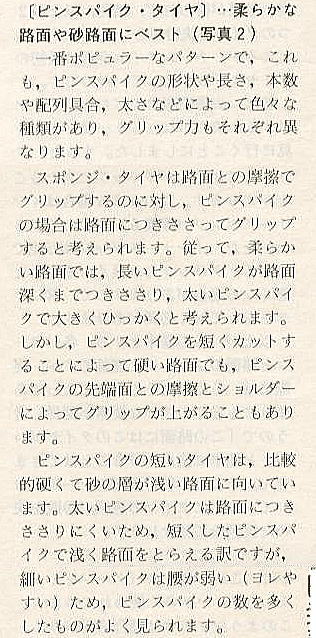 〔ピンスパイク・タイヤ〕…柔らかな
路面や砂路面にベスト（写真2）
一番ポピュラーなパターンで，これ
も，ピンスパイクの形状や長さ，本数
や配列具合，太さなどによって色々な
種類があり，グリップ力もそれぞれ異
なります。
スポンジ・タイヤは路面との摩擦で
グリップするのに対し，ピンスパイク
の場合は路面につきささってグリップ
すると考えられます。従って，柔らか
い路面では，長いピンスパイクが路面
深くまでつきささり，太いピンスパイ
クで大きくひっかくと考えられます。
しかし，ピンスパイクを短くカットす
ることによって硬い路面でも，ピンス
パイクの先端面との摩擦とショルダー
によってグリップが上がることもあり
ます。
ピンスパイクの短いタイヤは，比較
的硬くて砂の層が浅い路面に向いてい
ます。太いピンスパイクは路面につき
ささりにくいため，短くしたピンスパ
イクで浅く路面をとらえる訳ですが，
細いピンスパイクは腰が弱い（ヨレや
すい）ため，ピンスパイクの数を多く
したものがよく見られます。